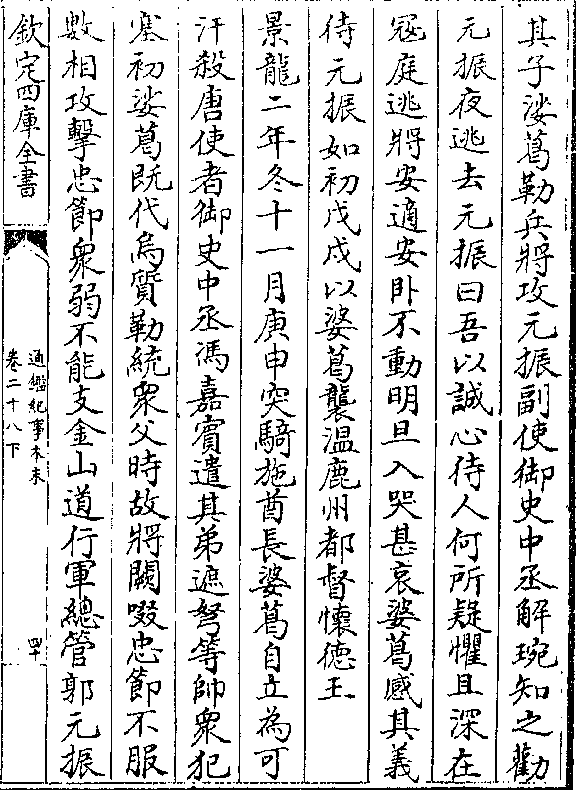 其子娑葛勒兵將攻元振副使御史中丞解琬知之勸
元振夜逃去元振曰吾以誠心待人何所疑懼且深在
冦庭逃將安適安卧不動明旦入哭甚哀娑葛感其義
待元振如初戊戌以娑葛襲温鹿州都督懷德王
景龍二年冬十一月庚申突騎施酋長娑葛自立為可
汗殺唐使者御史中丞馮嘉賓遣其弟遮弩等帥衆犯
塞初娑葛既代烏質勒統衆父時故將闕啜忠節不服
數相攻擊忠節衆弱不能支金山道行軍總管郭元振
欽定四庫全書
通鑑紀事本末
卷二十八下
四十